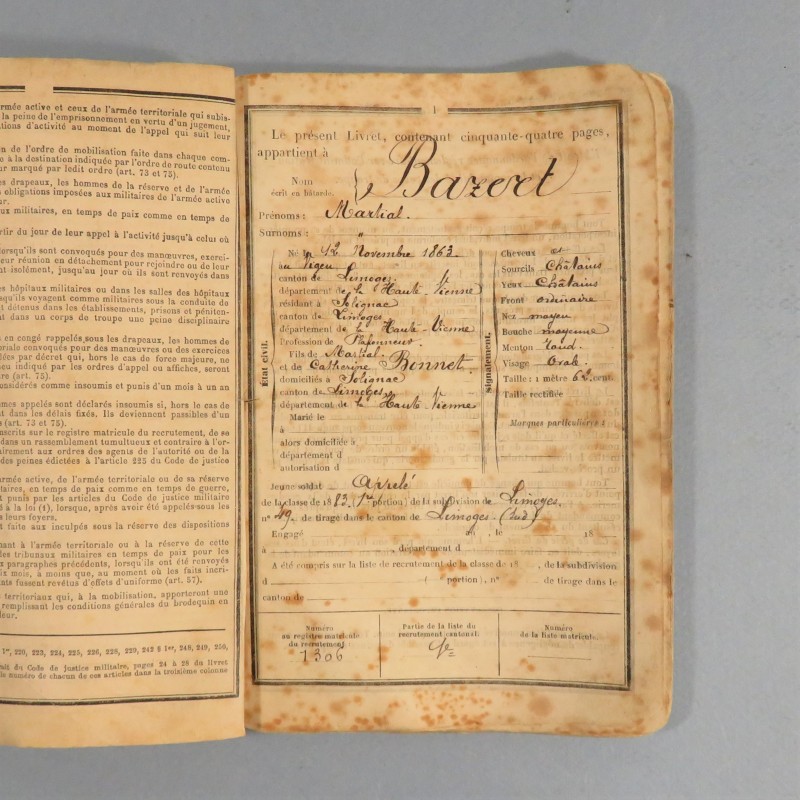 rmée active et ceux de l'armée territoriale qui subis-
la peine de l'emprisonnement en vertu d'un jugement,
tions d'activité au moment de l'appel qui suit leur
on de l'ordre de mobilisation faite dans chaque com-
e à la destination indiquée par l'ordre de route contenu
ur marqué par ledit ordre (art. 73 et 75).
es drapeaux, les hommes de la réserve et de l'armée
obligations imposées aux militaires de l'armée active
ur.
ux militaires, en temps de paix comme en temps de
artir du jour de leur appel à l'activité jusqu'à celui où
lorsqu'ils sont convoqués pour des manœuvres, exerci-
eur réunion en détachement pour rejoindre ou de leur
nt isolément, jusqu'au jour où ils sont renvoyés dans
es hôpitaux militaires ou dans les salles des hôpitaux
squ'ils voyagent comme militaires sous la conduite de
t détenus dans les établissements, prisons et péniten-
ent dans un corps de troupe une peine disciplinaire
u en congé rappelés sous les drapeaux, les hommes de
toriale convoqués pour des manœuvres ou des exercices
lées par décret qui, hors le cas de force majeure, ne
eu indiqué par les ordres d'appel ou affiches, seront
aire.
onsidérés comme insoumis et punis d'un mois à un an
mes appelés sont déclarés insoumis si, hors le cas de
nt dans les délais fixés. Ils deviennent passibles d'un
s (art. 73 et 75).
nscrits sur le registre matricule du recrutement, de sa
dans un rassemblement tumultueux et contraire à l'or-
airement aux ordres des agents de l'autorité ou de la
des peines édictées à l'article 225 du Code de justice
rmée active, de l'armée territoriale ou de sa réserve
itaires, en temps de paix comme en temps de guerre,
t punis par les articles du Code de justice militaire
à la loi (1), lorsque, après avoir été appelés sous les
s leurs foyers.
t faite aux inculpés sous la réserve des dispositions
nant à l'armée territoriale ou à la réserve de cette
des tribunaux militaires en temps de paix pour les
x paragraphes précédents, lorsqu'ils ont été renvoyés
ix mois, à moins que, au moment où les faits incri-
ants fussent revêtus d'effets d'uniforme (art. 57).
territoriaux qui, à la mobilisation, apporteront une
remplissant les conditions générales du brodequin en
leur.
1er, 220, 222, 224, 225, 226, 228, 229, 242 § 1er, 248, 249, 250,
ait du Code de justice militaire, pages 24 à 28 du livret
le numéro de chacun de ces articles dans la troisième colonne
1
Le présent Livret, contenant cinquante-quatre pages,
appartient à
Nom
écrit en bâtarde. Bazert
Prénoms : Martial.
Surnoms : "
État civil.
Né le 12 Novembre 1863.
au Vigeu
canton de Limoges.
département de la Haute-Vienne
résidant à Solignac
canton de Limoges
département de la Haute-Vienne
Profession de Plafonneur.
Fils de Martial
et de Catherine Bonnet
domiciliés à Solignac
canton de Limoges
département de la Haute Vienne
Marié le
à
alors domiciliée à
département d
autorisation d
signalement.
Cheveux et
Sourcils Châtains
Yeux Châtains
Front ordinaire
Nez moyen
Bouche moyenne
Menton rond
Visage Oval
Taille : 1 mètre 62 cent.
Taille rectifiée
Marques particulières :
Jeune soldat Appelé
de la classe de 1883 (1re portion) de la subdivision de Limoges,
n° 49 de tirage dans le canton de Limoges (Sud)
Engagé , le 18
à , département d
A été compris sur la liste de recrutement de la classe de 18 , de la subdivision
d ( portion), n° de tirage dans le
canton de
Numéro
au registre matricule
du recrutement.
1306
Partie de la liste du
recrutement cantonal.
Numéro
de la liste matricule.